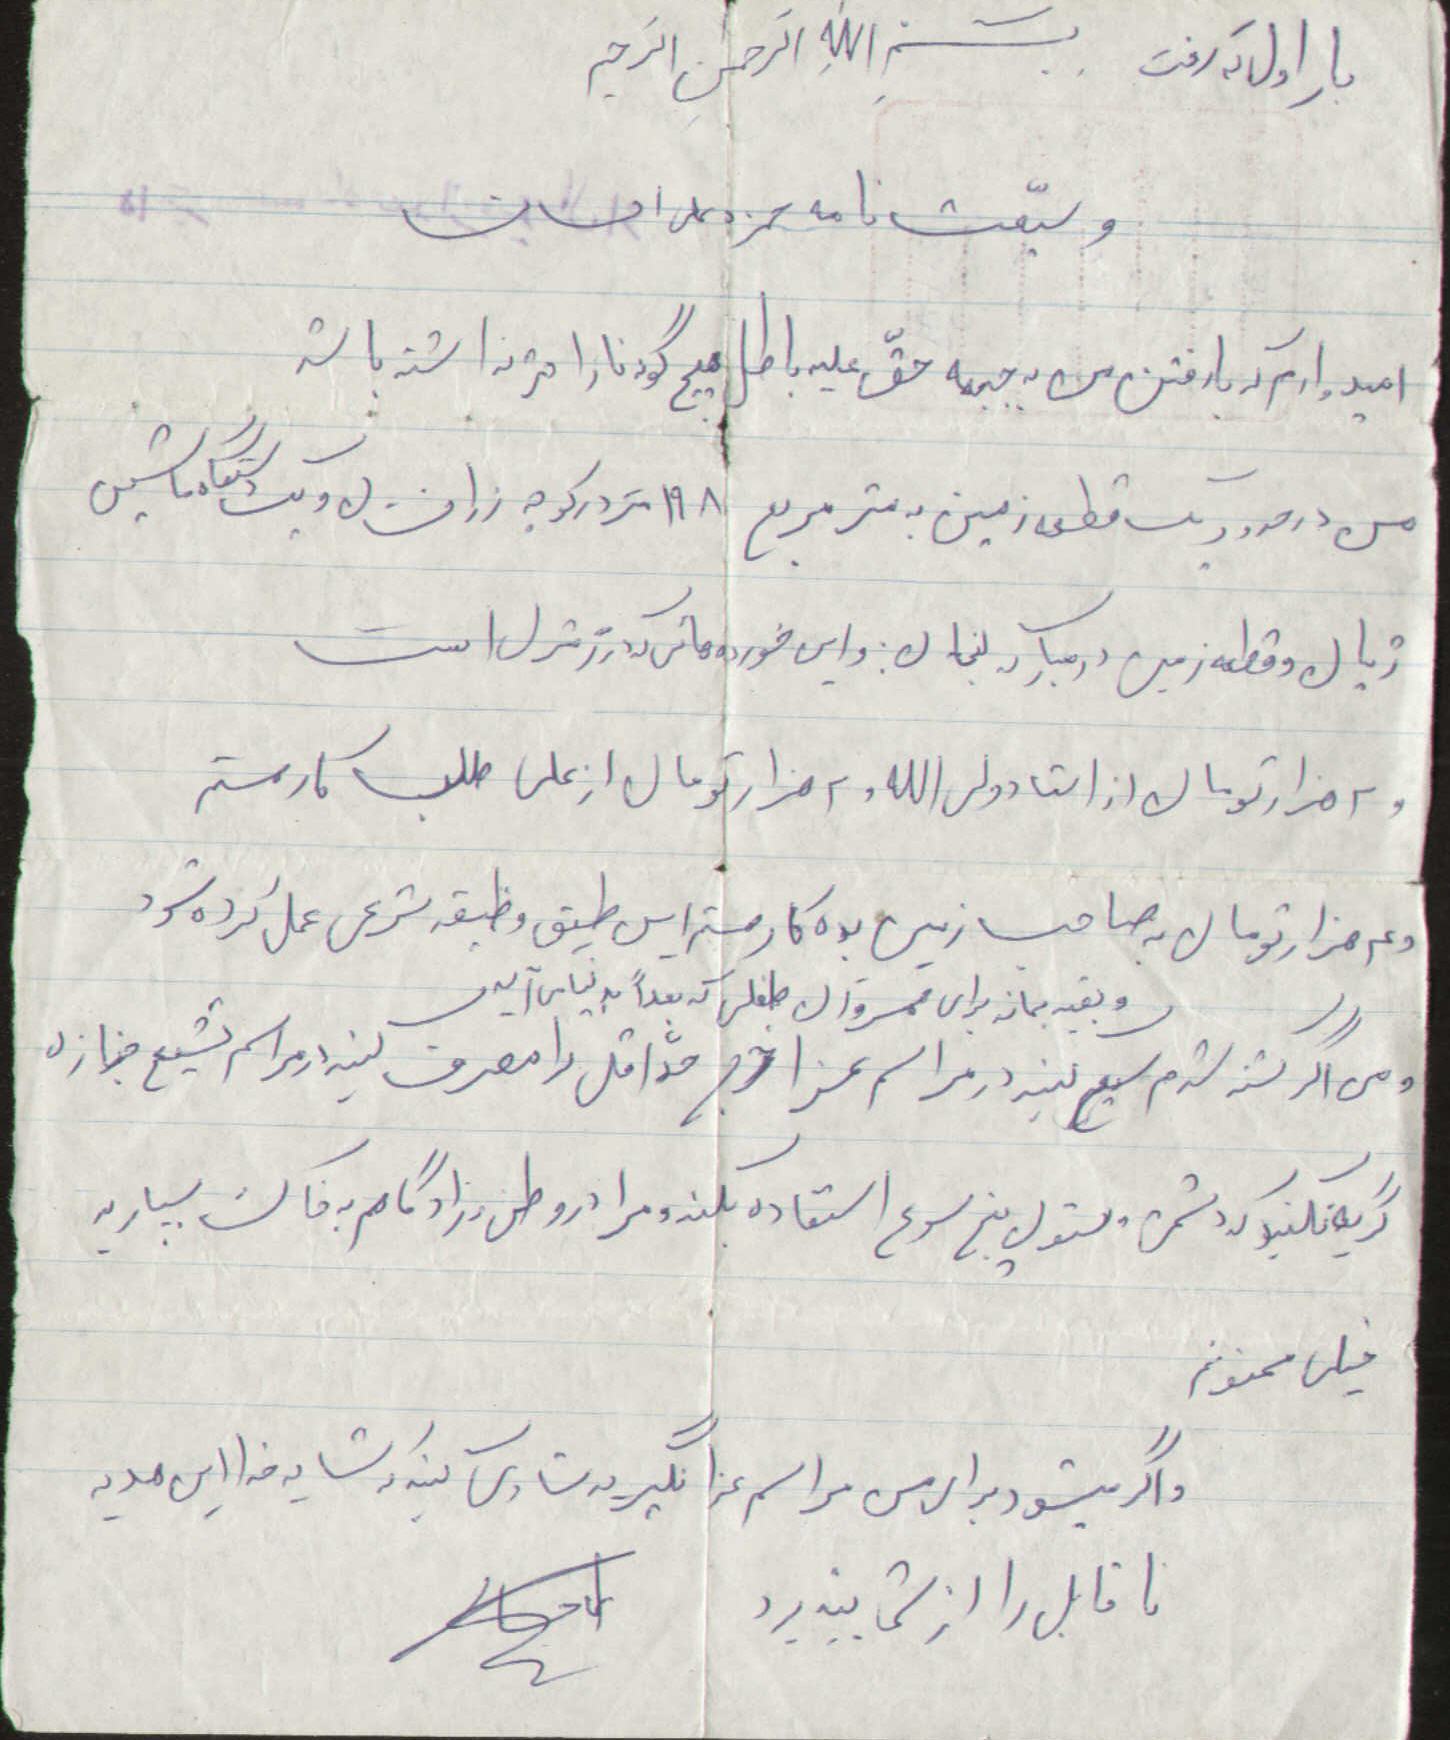 بار اول که رفت بِسْمِ اللهِ الرَّحمنِ الرَّحیم
وسیّعت نامه حمزه علی احسانی
امیدوارم که با رفتن من به جبهه حقّ علیه باطل هیچ گونه ناراحتی نداشته باشید
من در حدود یک قطعه زمین به متر مربع ۱۹۸ متر در کوچه و یک دستگاه ماشین
ژیان و قطعه زمین در مبارکه و این خورده هائی که در منزل است
و ۲ هزار تومان از استاد ولی الله و ۲ هزار تومان از علی طلب کار هستم
و هزار تومان به صاحب زمین بده کار هستم این طبق وظیفه شرعی عمل کرده شود
و بقیه بماند برای همسر و آن طفلی که بعداً به دنیا می آید
و من اگر کشته شدم سعی کنید در مراسم عزا خرج حدّاقل را مصرف کنید در مراسم تشییع جنازه
گریه نکنید که دشمن و ستون پنج سوع استفاده بکند و مرا در وطن زادگاهم به خاک بسپارید
خیلی ممنونم
و اگر میشود برای من مراسم عزا نگیرید شادی کنید که شاید خدا این هدیه
نا قابل را از شما بپذیرد